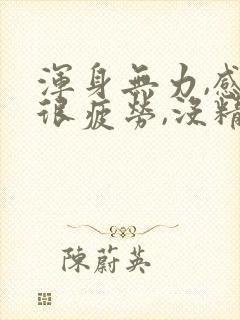 渾身無力,感
很疲勞,沒精
陳蔚英